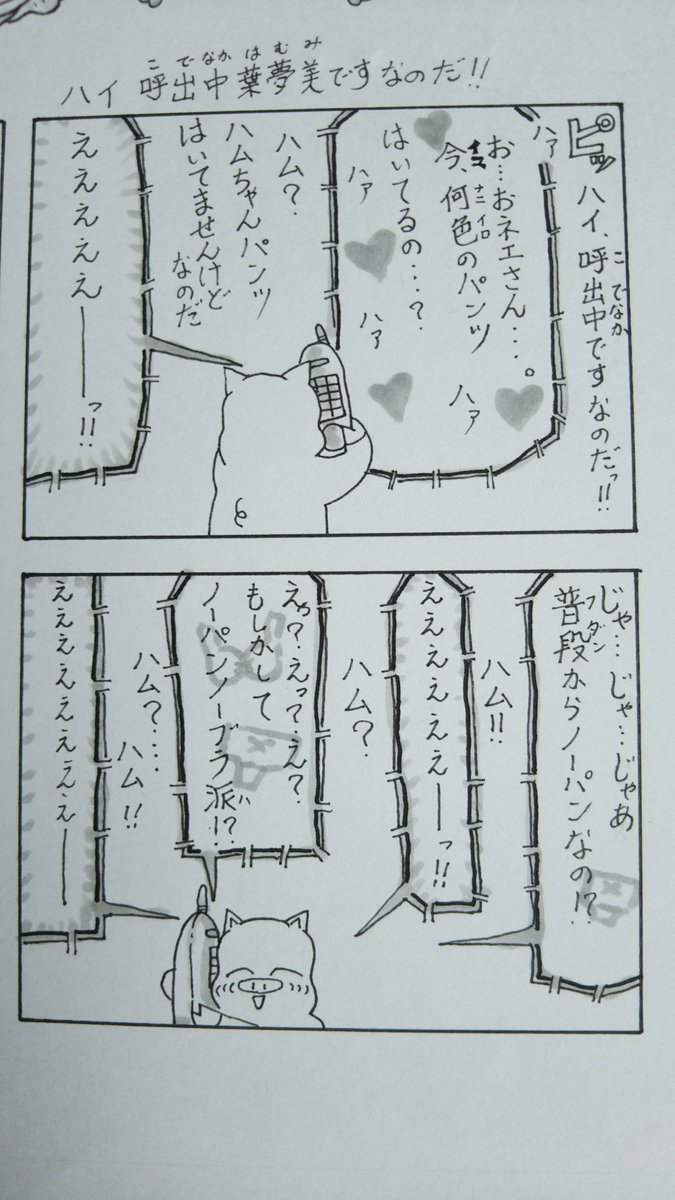 ハイ 呼出中葉夢美ですなのだ!!
こ でなか は む み
ピッ
ハイ、呼出中ですなのだっ!!
こ でなか
ハァ
お…おネエさん…。
今、何色のパンツ
イマ ナニ イロ
はいてるの…?
ハァ
ハァ
ハァ
ハム?
ハムちゃんパンツ
はいてませんけど
なのだ
えええええーーっ!!
じゃ…じゃ…じゃあ
普段からノーパンなの!?
フダン
ハム!!
ええええええーっ!!
ハム?
えっ?えっ?え?
もしかして
ノーパンノーブラ派!?
ハ
ハム?…
ハム!!
ええええええええーー